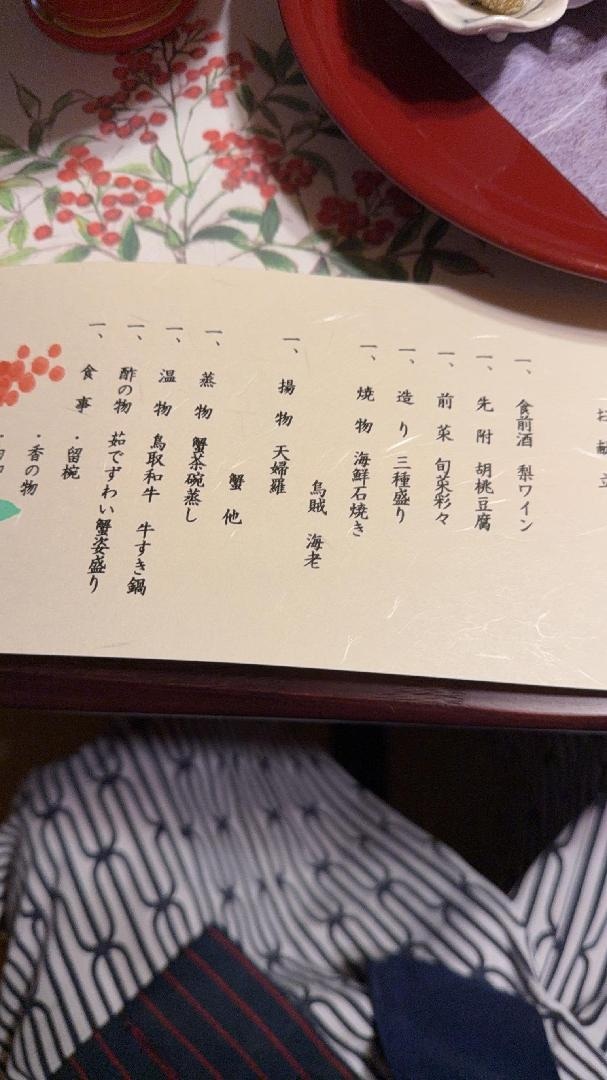 お献立
一、食前酒 梨ワイン
一、先附 胡桃豆腐
一、前菜 旬菜彩々
一、造り 三種盛り
一、焼物 海鮮石焼き
烏賊 海老
一、揚物 天婦羅
蟹 他
一、蒸物 蟹茶碗蒸し
一、温物 鳥取和牛 牛すき鍋
一、酢の物 茹でずわい蟹姿盛り
一、食事 ・留椀
・香の物